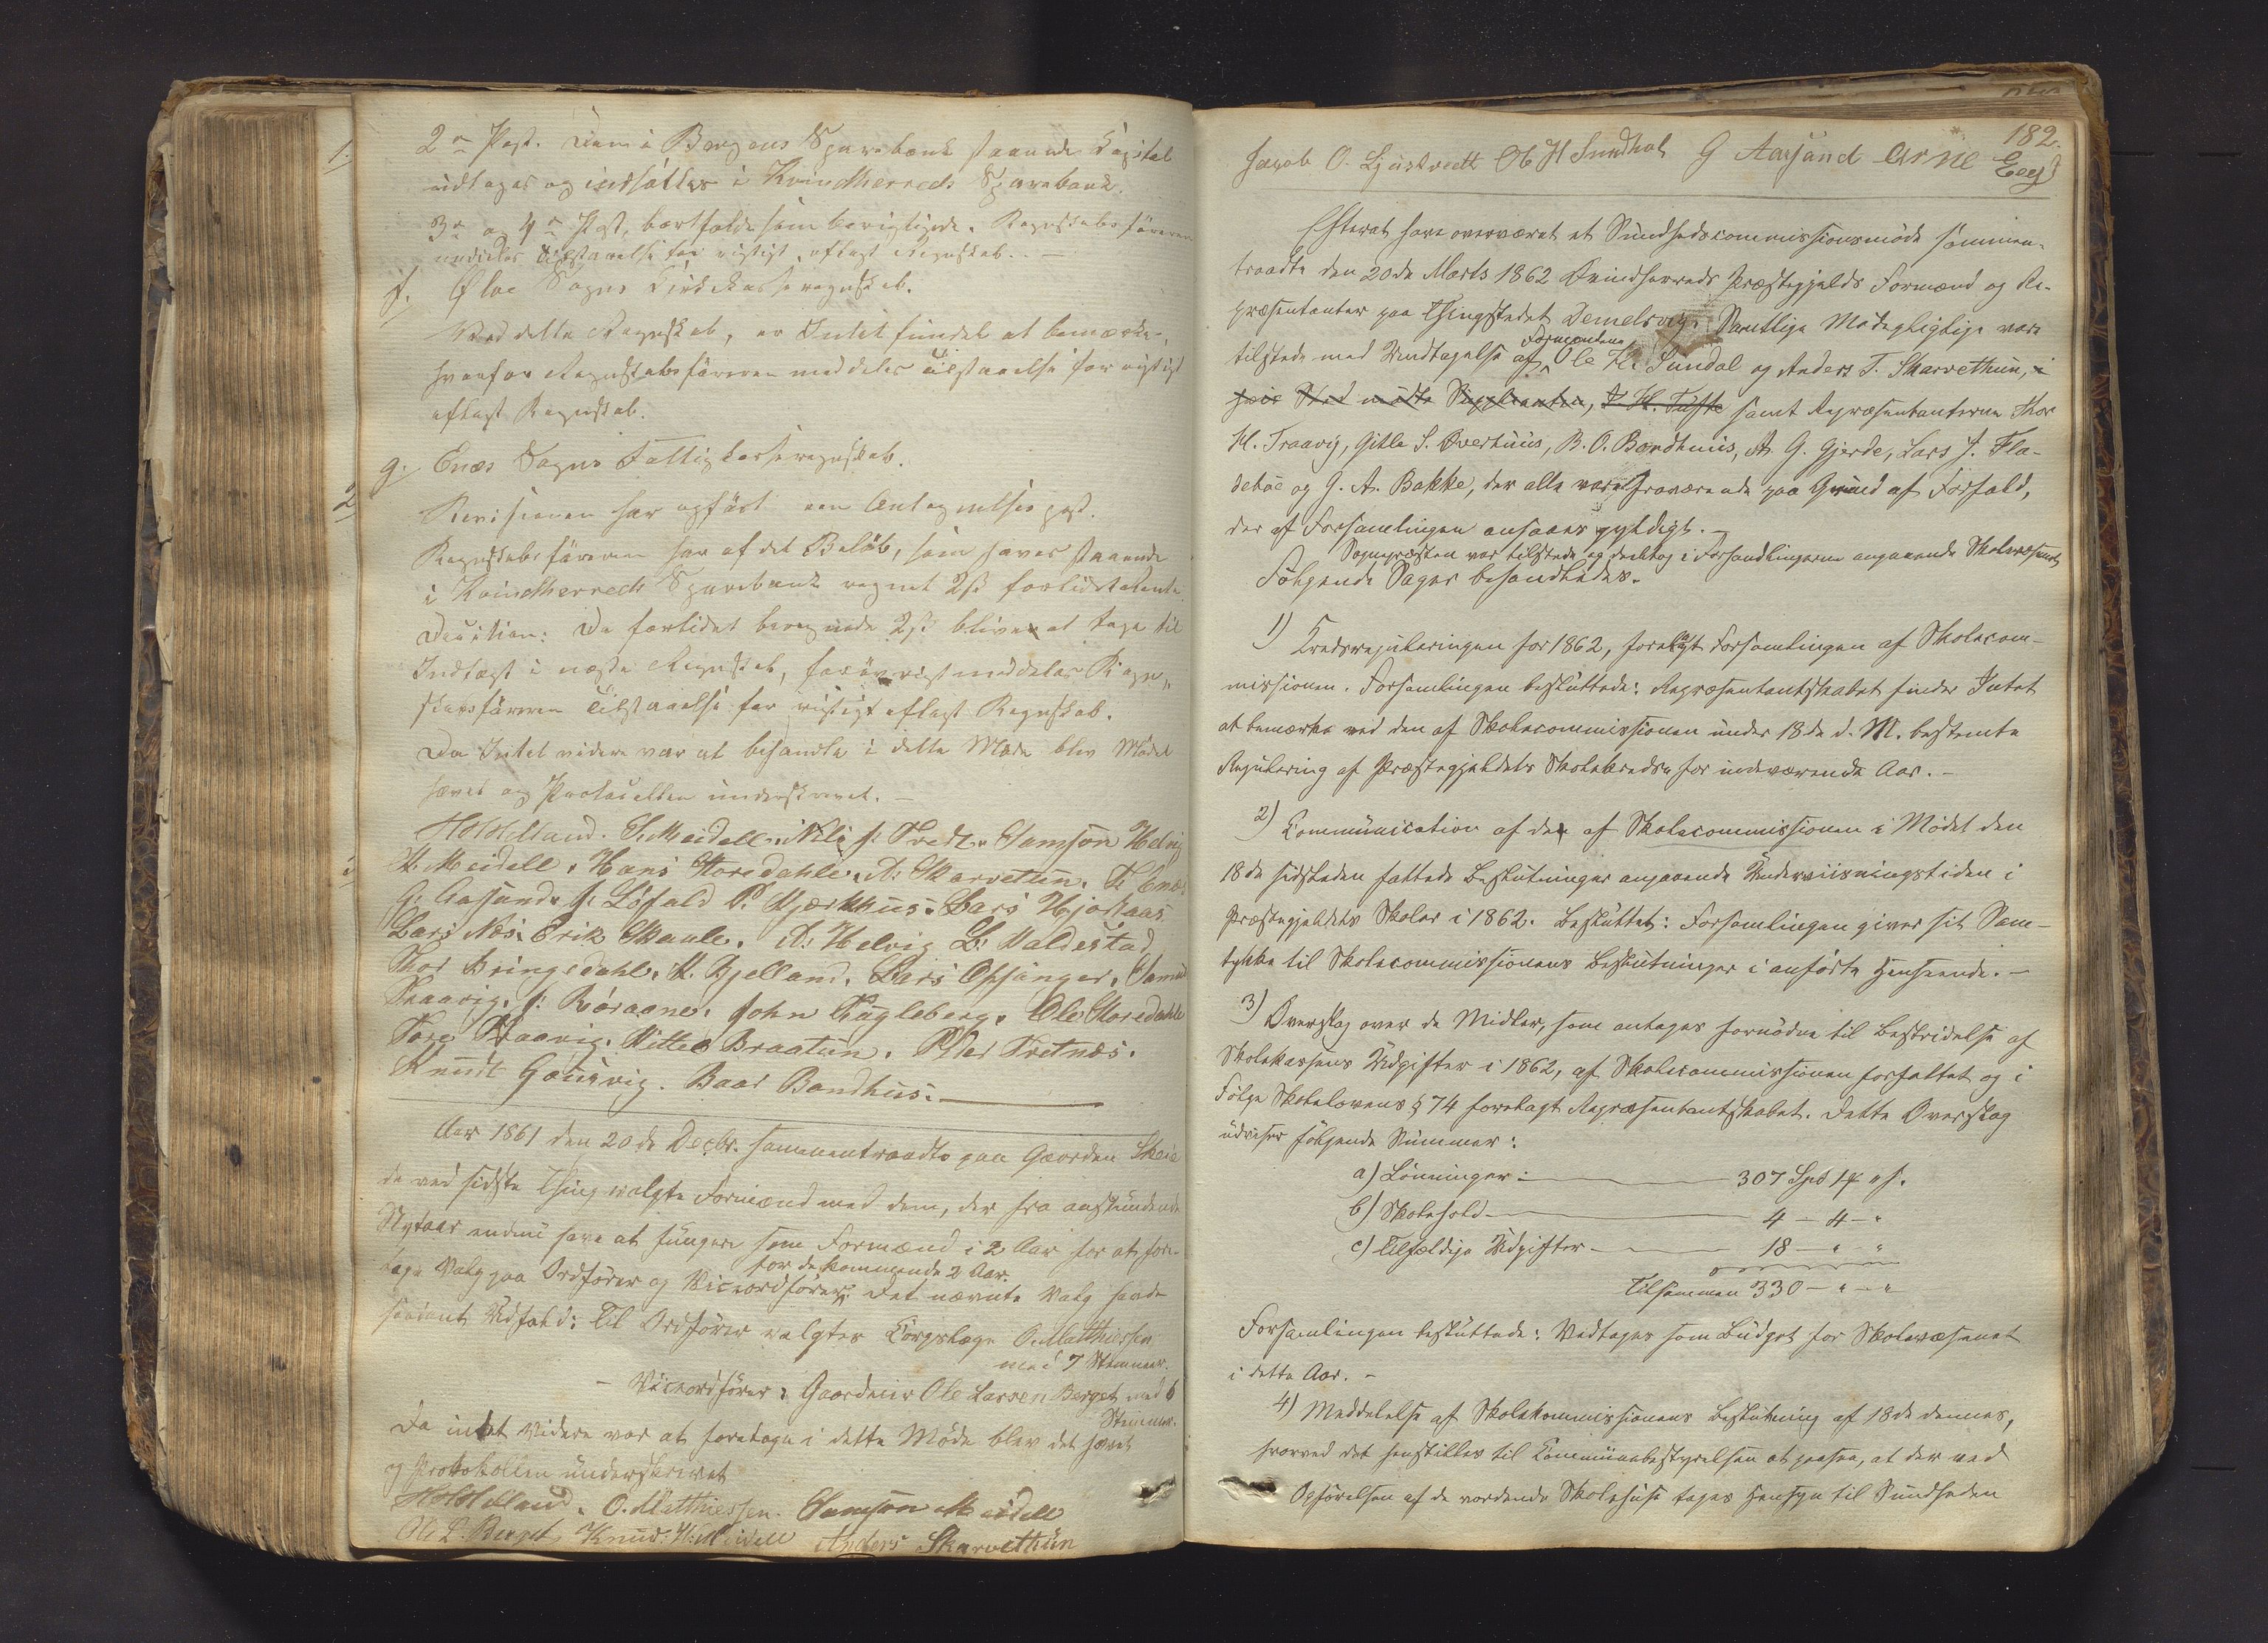 2den Post. Den i Bergens Sparebank staaende Capital
udtages og indsættes i Kvindherreds Sparebank.
3de og 4de Post, bortfalde som berigtigede. Regnskabsføreren
meddeles Tilstaaelse for rigtigt aflagt Regnskab. —
f. Ølve Sogns Kirkekasseregnskab.
Ved dette Regnskab, er Intet fundet at bemærke,
hvorfor Regnskabsføreren meddeles Tilstaaelse for rigtigt
aflagt Regnskab.
g. Enæs Sogns Fattigkasseregnskab.
Revisionen har opført een Antegnelsespost.
Regnskabsføreren har af det Beløb, som haves staaende
i Kvindherreds Sparebank regnet 2ß forlidt Rente.
Decision: De forlidet beregnede 2ß bliver at tage til
Indtægt i næste Regnskab, forøvrigt meddeles Regn-
skabsføreren Tilstaaelse for rigtigt aflagt Regnskab.
Da Intet videre var at behandle i dette Møde blev Mødet
hævet og Protocollen underskrevet. —
H Hetland. C. Meidell. Nils J. Tvedt. Samson Helvig
K. Meidell. Hans Storedahle. A: Skarvetun. T. Enæs
G. Aasund. J. Løfald P. Kjærhus. Lars Hjortaas
Lars Næs. Erik Skaale. A: Helvig L: Waldestad
Thor Bringedahl. K. Bjelland. Lars Opsanger. Samuel
Traavig. J: Røraane. John Fugleberg. Ole Storedahle
Tore Traavig. Kittel Braatun. Peder Tretnæs.
Knudt Gousvig. Baar Bondhus.
Aar 1861 den 20de Decbr. sammentraadte paa Gaarden Skeie
de ved sidste Thing valgte Formænd med dem, der fra anstundende
Nytaar endnu have at fungere som Formænd i 2 Aar for at fore-
tage Valg paa Ordfører og Viceordfører for de kommende 2 Aar. Det nævnte Valg havde
saadant Udfald: Til Ordfører valgtes Corpslæge O. Matthiessen
med 7 Stemmer.
— Viceordfører: Gaardeier Ole Larsen Berget med 6
Stemmer.
Da intet Videre var at foretage i dette Møde blev det hævet
og Protokollen underskrevet
H Hetland. O. Matthiessen. Samson Meidell
Ole L. Berget Knud: H: Meidell Anders Skarvethun
182.
Jacob O. Ljustvedt Ob H Sundhol G Aarsand Arne Eeg
Efterat have overværet et Sundhedscommissionsmøde sammen-
traadte den 20de Marts 1862 Kvindherreds Præstegjelds Formænd og Re-
præsentanter paa Thingstedet Demelsvig. Samtlige Mødepligtige vare
tilstede med Undtagelse af Formændene Ole H. Sundal og Anders T. Skarvethun, i
hvis Sted mødte Suppleanten, T. H. Tufte samt Repræsentanterne Thor
H. Traavig, Gitle S. Øvertuus, B. O. Bondhuus, A. G. Gjerde, Lars J. Fla-
tebøe og J. A. Bakke, der alle vare fraværende paa Grund af Forfald,
der af Forsamlingen ansaaes gyldigt. —
Sognepræsten var tilstede og deeltog i Forhandlingerne angaaende Skolevæsenet
Følgende Sager behandledes.
1) Kredsreguleringen for 1862, forelagt Forsamlingen af Skolecom-
missionen. Forsamlingen besluttede: Repræsentantskabet finder Intet
at bemærke ved den af Skolecommissionen under 18de d. M. bestemte
Regulering af Præstegjeldets Skolekredse for indeværende Aar. —
2) Communication af de af Skolecommissionen i Mødet den
18de sidstleden fattede Beslutninger angaaende Underviisningstiden i
Præstegjeldets Skoler i 1862. Besluttet: Forsamlingen giver sit Sam-
tykke til Skolecommissionens Beslutninger i anførte Henseende. —
3) Overslag over de Midler, som antages fornødne til Bestridelse af
Skolekassens Udgifter i 1862, af Skolecommissionen forfattet og i
Følge Skolelovens § 74 forelagt Repræsentantskabet. Dette Overslag
udviser følgende Summer:
a) Lønninger: — 307 Spd 14 " s.
b) Skolehold — 4 — 4 — "
c) Tilfældige Udgifter — 18 — " — "
Tilsammen 330 — " — "
Forsamlingen besluttede: Vedtages som Budget for Skolevæsenet
i dette Aar. —
4) Meddelelse af Skolekommissionens Beslutning af 18de dennes,
hvorved det henstilles til Communebestyrelsen at paasee, at der ved
Opførelsen af de vordende Skolehuse tages Hensyn til Sundheden